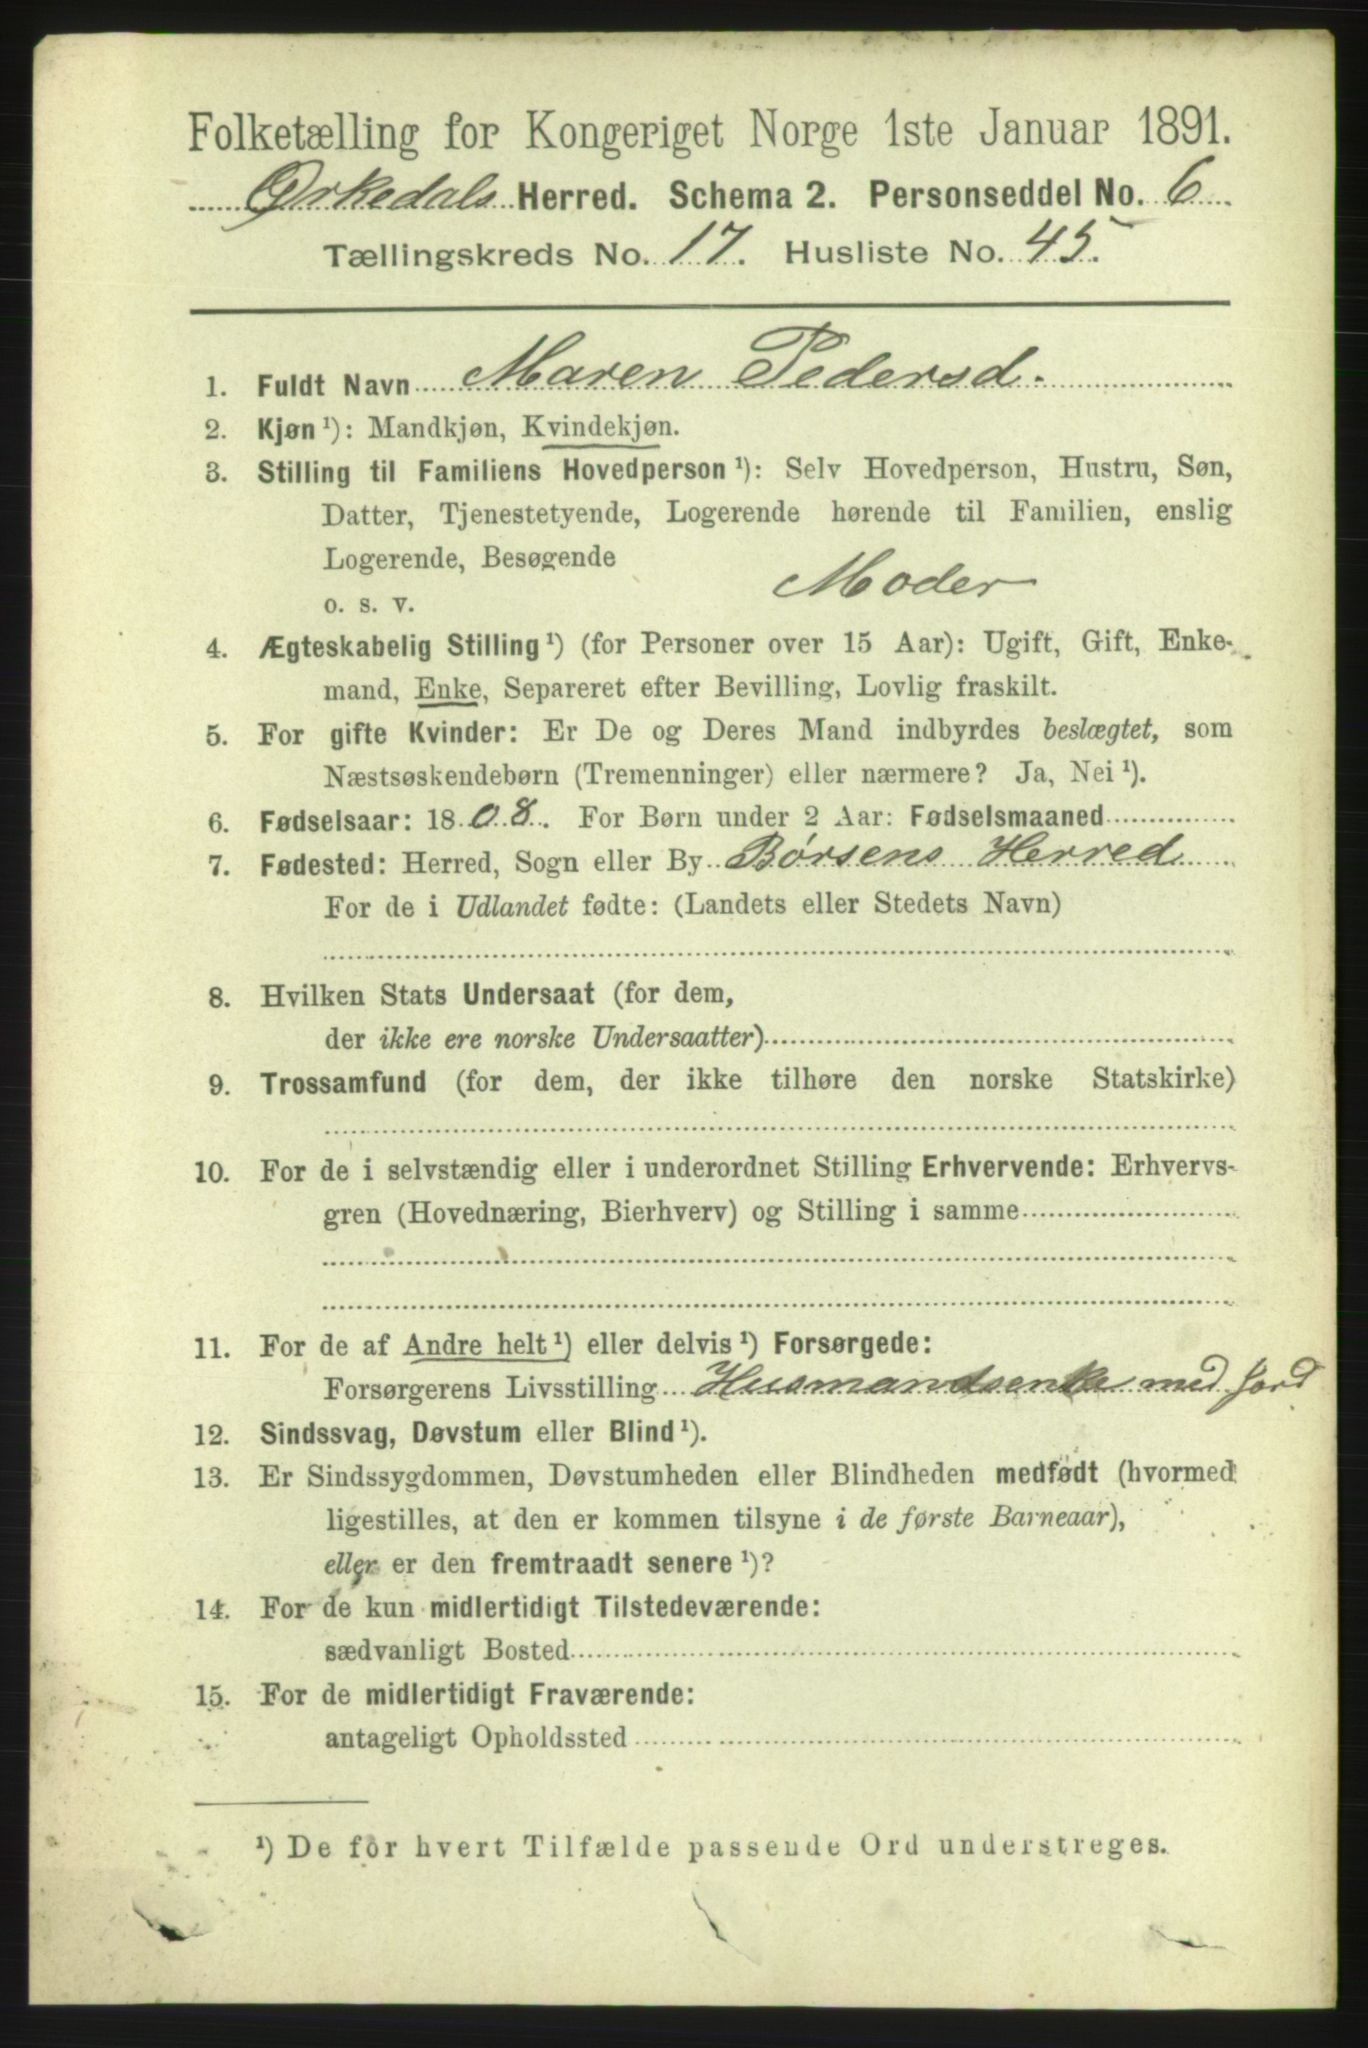 Folketælling for Kongeriget Norge 1ste Januar 1891.
Ørkedals Herred. Schema 2. Personseddel No. 6
Tællingskreds No. 17. Husliste No. 45.
1. Fuldt Navn Maren Pedersd.
2. Kjøn ¹): Mandkjøn, Kvindekjøn.
3. Stilling til Familiens Hovedperson ¹): Selv Hovedperson, Hustru, Søn,
Datter, Tjenestetyende, Logerende hørende til Familien, enslig
Logerende, Besøgende
o. s. v. Moder
4. Ægteskabelig Stilling ¹) (for Personer over 15 Aar): Ugift, Gift, Enke-
mand, Enke, Separeret efter Bevilling, Lovlig fraskilt.
5. For gifte Kvinder: Er De og Deres Mand indbyrdes beslægtet, som
Næstsøskendebørn (Tremenninger) eller nærmere? Ja, Nei ¹).
6. Fødselsaar: 1808. For Børn under 2 Aar: Fødselsmaaned
7. Fødested: Herred, Sogn eller By Børsens Herred
For de i Udlandet fødte: (Landets eller Stedets Navn)
8. Hvilken Stats Undersaat (for dem,
der ikke ere norske Undersaatter)
9. Trossamfund (for dem, der ikke tilhøre den norske Statskirke)
10. For de i selvstændig eller i underordnet Stilling Erhvervende: Erhvervs-
gren (Hovednæring, Bierhverv) og Stilling i samme
11. For de af Andre helt ¹) eller delvis ¹) Forsørgede:
Forsørgerens Livsstilling Husmandsenke med Jord
12. Sindssvag, Døvstum eller Blind ¹).
13. Er Sindssygdommen, Døvstumheden eller Blindheden medfødt (hvormed
ligestilles, at den er kommen tilsyne i de første Barneaar),
eller er den fremtraadt senere ¹)?
14. For de kun midlertidigt Tilstedeværende:
sædvanligt Bosted
15. For de midlertidigt Fraværende:
antageligt Opholdssted
¹) De for hvert Tilfælde passende Ord understreges.